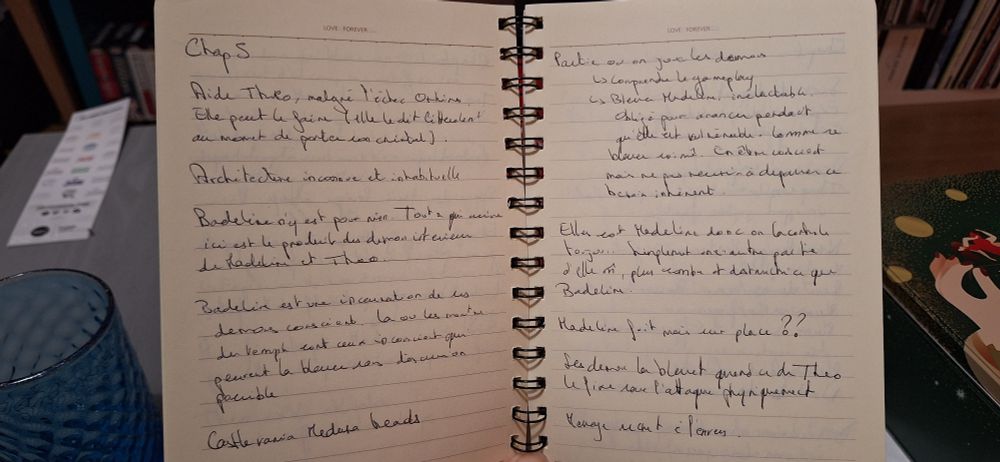 LOVE FOREVER...
Chap 5
Aide Theo, malgré l'échec
Elle peut le faire (elle le dit littéralement
au moment de porter son cristal).
Architecture inconnue et inhabituelle
Badeline n'y est pour rien. Tout ce qui arrive
ici est le produit des demon intérieur
de Madeline et Theo.
Badeline est une incarnation de ces
demons conscient. La ou les monstre
du temple sont ceux inconscient qui
peuvent la blesser sans discussion
possible
Castlevania Medusa heads
LOVE FOREVER...
Partie ou on joue les demons
↳ Comprendre le gameplay
↳ Blesser Madeline, inéluctable.
Obligé pour avancer pendant
qu'elle est vulnérable. Comme se
blesser soi m. En être conscient
mais ne pas réussir à dépasser ce
besoin inhérent.
Elles est Madeline donc on la controle
toujours... Simplement une autre partie
d'elle m, plus sombre et destructrice que
Badeline.
Madeline fuit mais sur place ??
Les demon la blessent quand ce de Theo
le fixe sans l'attaque physiquement
à l'envers.